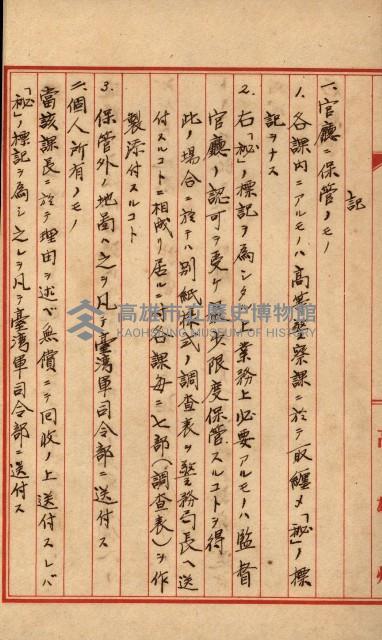 記
一、官廳ニ保管ノモノ
1. 各課內ニアルモノハ高等警察課ニ於テ取纏メ「祕」ノ標
記ヲナス
2. 右「祕」ノ標記ヲ為シタル上業務上必要アルモノハ監督
官廳ノ認可ヲ受ケ最少限度保管スルコトヲ得
此ノ場合ニ於テハ別紙様式ノ調查表ヲ警務局長ヘ送
付スルコトニ相成リ居ルニ付各課毎ニ七部(調查表)ヲ作
製添付スルコト
3. 保管外ノ地圖ハ之ヲ凡テ臺灣軍司令部ニ送付ス
二、個人所有ノモノ
當該課長ニ於テ理由ヲ述ベ無償ニテ回收ノ上送付スレバ
「祕」ノ標記ヲ為シ之レヲ凡テ臺灣軍司令部ニ送付ス
高雄市立歷史博物館
KAOHSIUNG MUSEUM OF HISTORY
高雄州